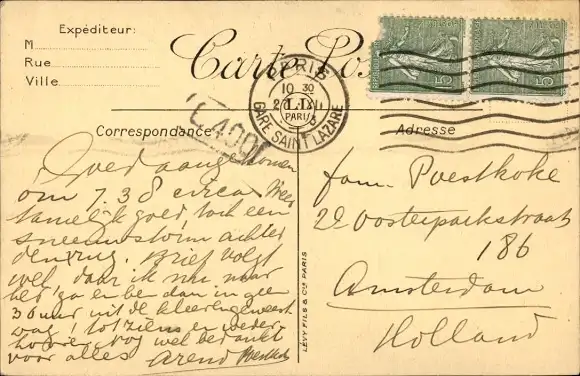 Expéditeur:
M
Rue
Ville
Carte Pos
15 15
PARIS
10 30
GARE SAINT LAZARE
PARIS
Correspondance
Adresse
Goed aangekomen
om 7.30 circa. Weer
tamelijk goed, toch een
sneeuwstorm achter
den rug. Brief volgt
wel, daar ik nu naar
bed ga en be dan in geen
30 uur uit de kleeren geweest
wag! tot ziens en weder-
hooren, nog wel bedankt
voor alles Arend
fam. Poestkoke
2e Oosterparkstraat
186
Amsterdam
Holland
LÉVY FILS & Cie PARIS